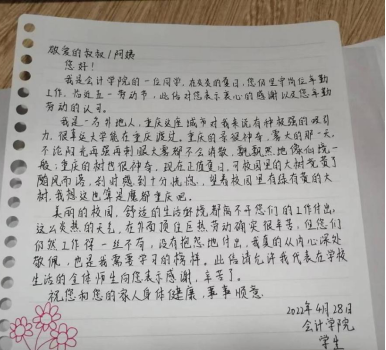 敬爱的叔叔/阿姨
您好！
我是会计学院的一位同学，在炎炎的夏日，您仍坚守岗位辛勤
工作，恰处五一劳动节，此信对您表示衷心的感谢以及您辛勤
劳动的认可。
我是一名外地人，重庆这座城市对我来说有种极强的吸引
力，很幸运大学能在重庆渡过。重庆的景很神奇，雾大的那一天，
不论阳光再强再刺眼大雾都不会消散，飘飘然地像仙境一
般；重庆的树也很神奇，现在正值夏日，可校园里的大树
随风而落，刹时感到十分恍惚，望着校园里有绿有黄的大
树，我想这也算是魔都重庆吧。
美丽的校园，舒适的生活环境都离不开您们的工作付出，
这么炎热的天气，在外面顶住巨热劳动确实很辛苦，但您们
仍然工作得一丝不苟，没有抱怨地付出，我真的从内心深处
敬佩，也是我需要学习的榜样。此信请允许我代表在学校
生活的全体师生向您表示感谢，辛苦了。
祝您和您的家人身体健康，事事顺意。
2022年4月28日
会计学院
学生